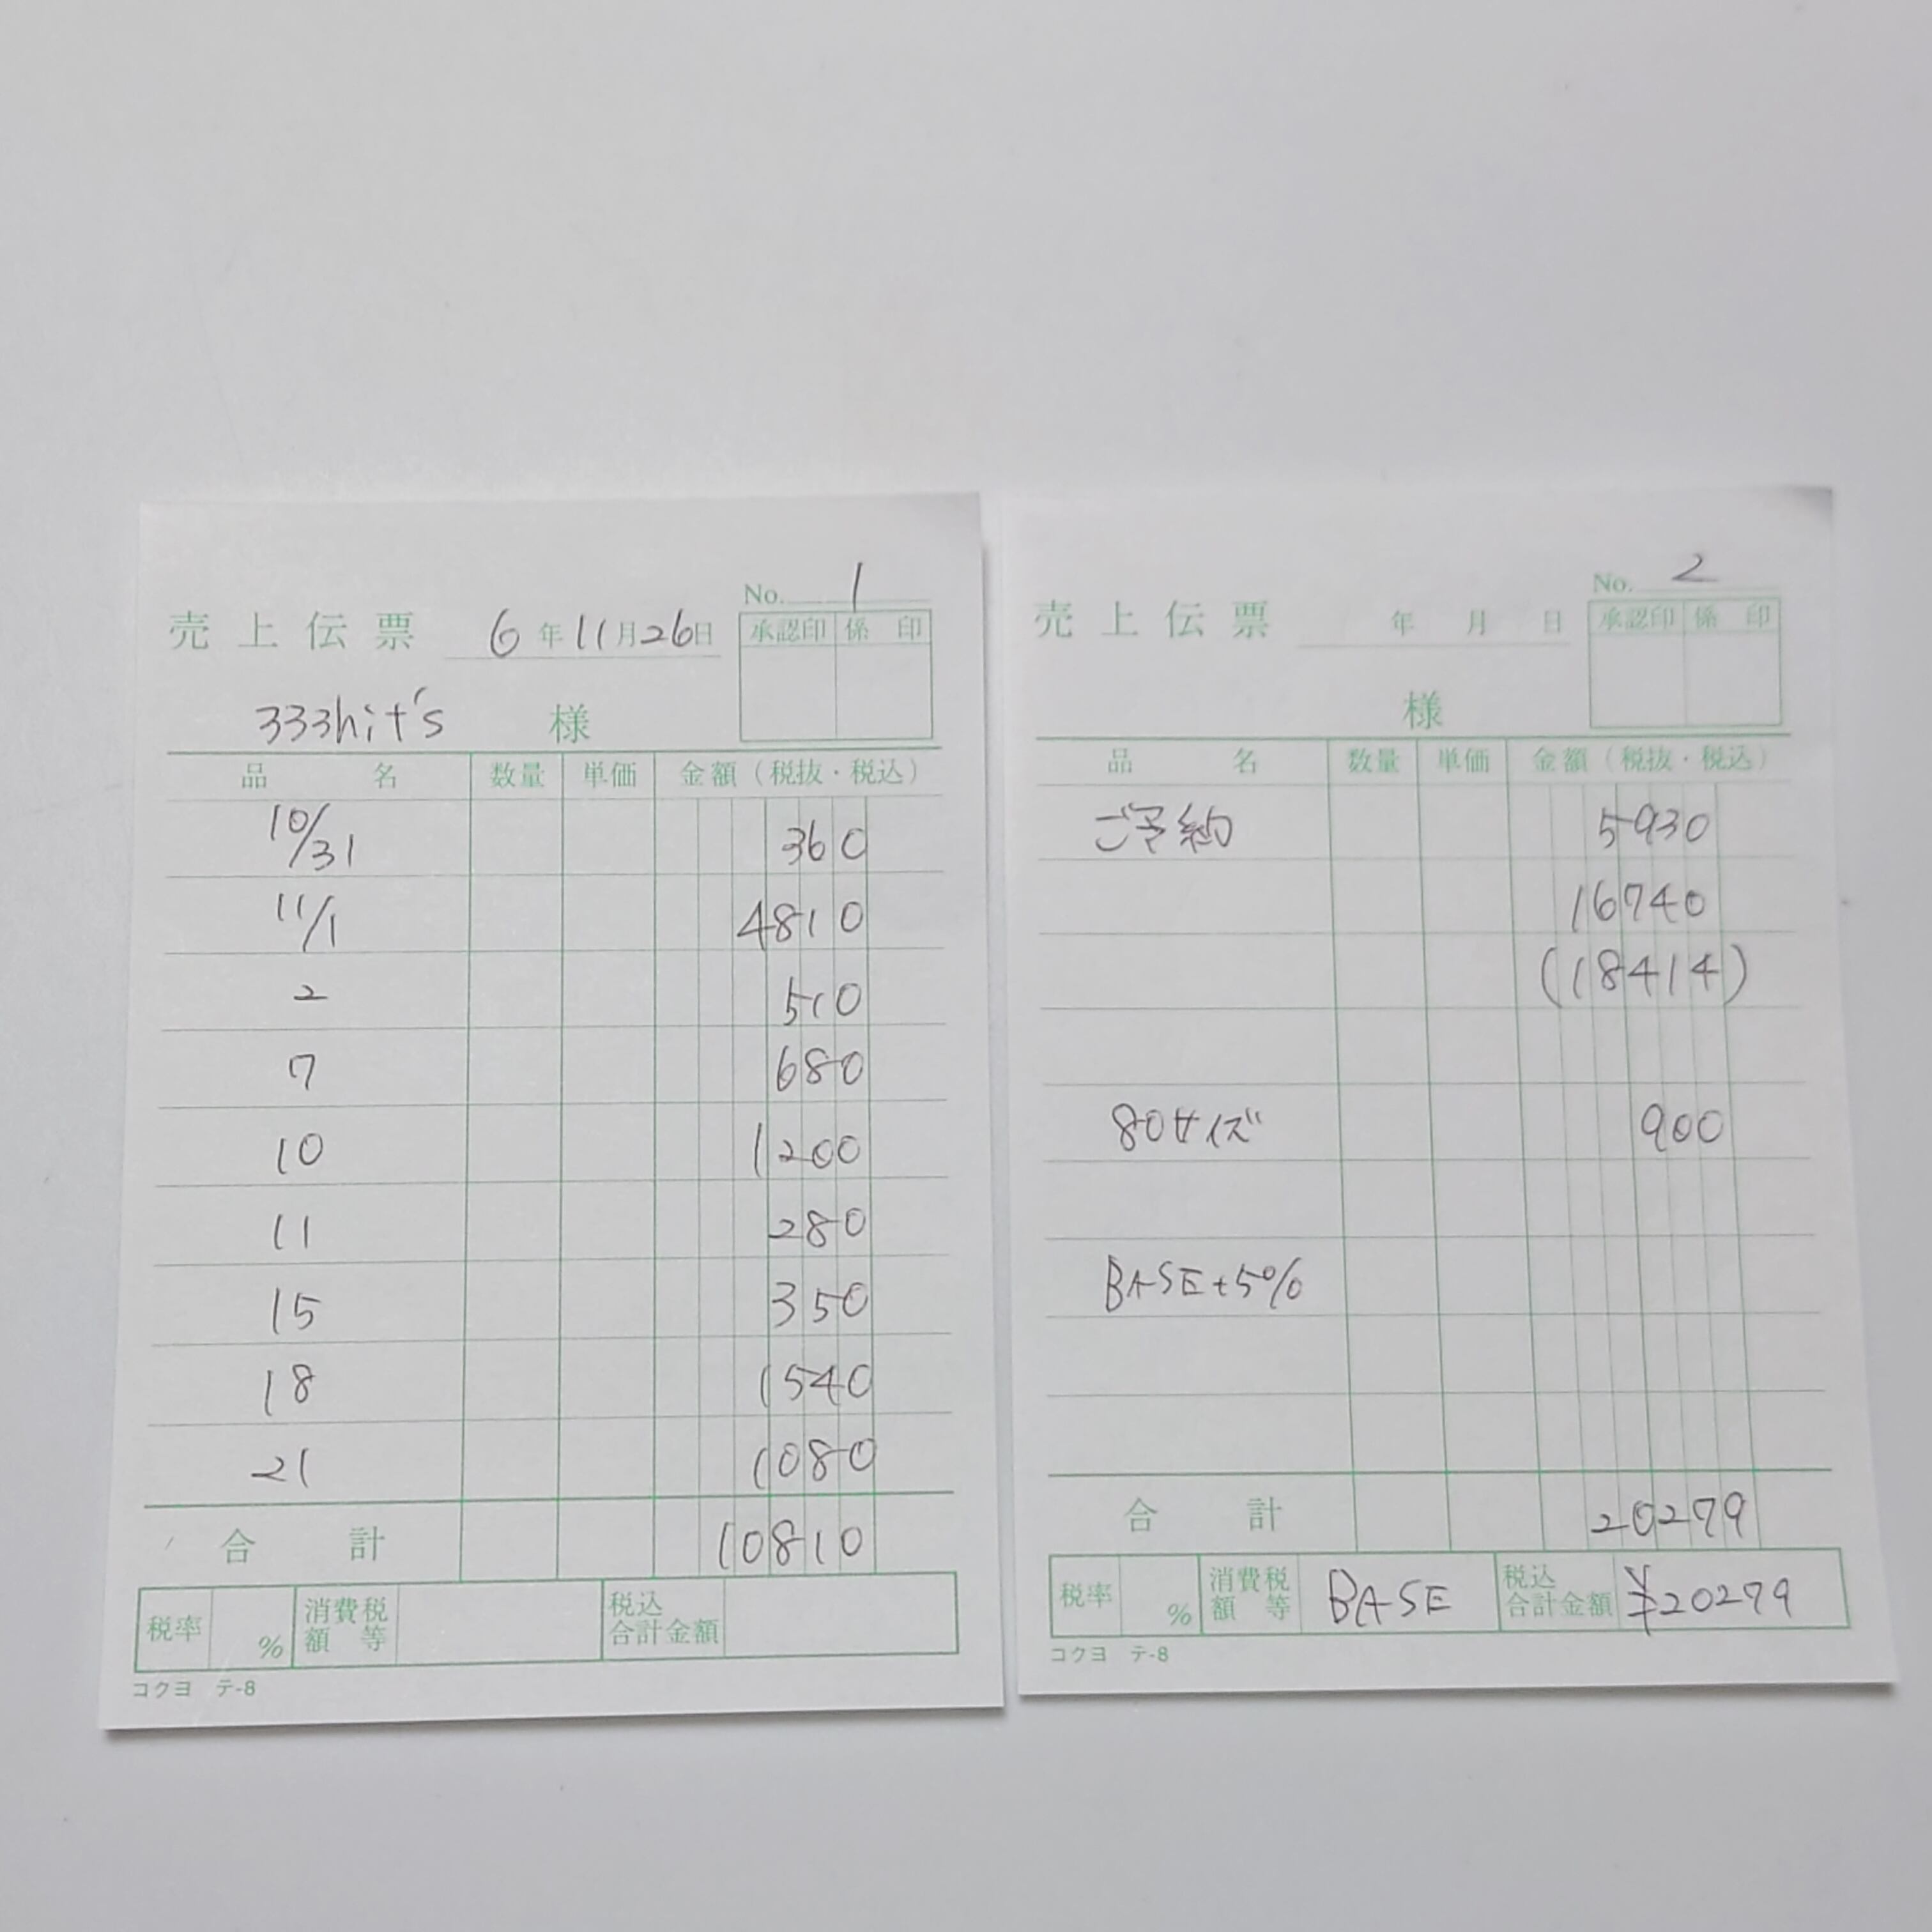 No. 1
売上伝票 6年11月26日
承認印 係印
333hit's 様
品名 数量 単価 金額（税抜・税込）
10/31 360
11/1 4810
2 510
7 680
10 1200
11 280
15 350
18 1540
21 1080
合計 10810
税率 % 消費税額等 税込合計金額
コクヨ テ-8
No. 2
売上伝票 年 月 日
承認印 係印
様
品名 数量 単価 金額（税抜・税込）
ご予約 5930
16740
(18414)
80サイズ 900
BASE+5%
合計 20279
税率 % 消費税額等 BASE 税込合計金額 ¥20279
コクヨ テ-8